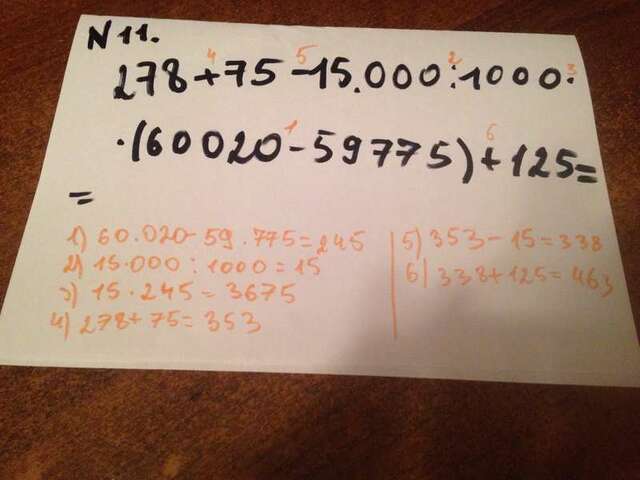 N 11.
278 + 75 - 15.000 : 1000 ·
· (60020 - 59775) + 125 =
=
1) 60.020 - 59.775 = 245
2) 15.000 : 1000 = 15
3) 15 · 245 = 3675
4) 278 + 75 = 353
5) 353 - 15 = 338
6) 338 + 125 = 463